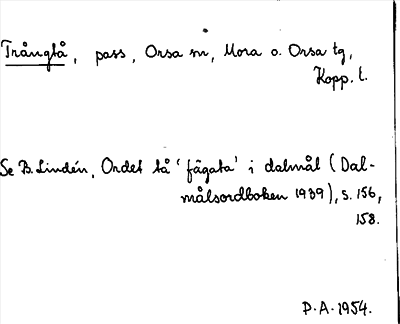 Trångtå, pass, Orsa sn, Mora o. Orsa tg,
Kopp. l.
Se B. Lindén, Ordet tå 'fägata' i dalmål (Dal-
målsordboken 1939), s. 156,
158.
P.A. 1954.